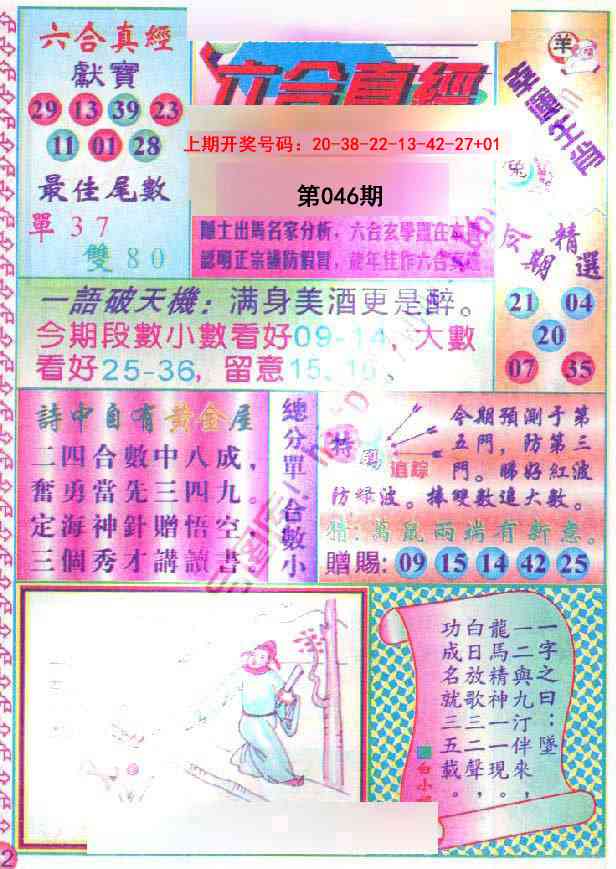 六合真經
獻寶
29 13 39 23
11 01 28
最佳尾數
單 3 7
雙 8 0
六合真經
上期开奖号码：20-38-22-13-42-27+01
第046期
六合玄學
羊
兔
今期精選
21 04
20
07 35
一語破天機：满身美酒更是醉。
今期段數小數看好09-14，大數
看好25-36，留意15、16、
詩中自有黃金屋
二四合數中八成，
奮勇當先三四九。
定海神針贈悟空，
三個秀才講讀書。
總分單
合數小
特圍
追踪
今期預測于第
五門，防第三
門。睇好紅波
防綠波。捧雙數追大數。
猜：萬鼠兩端有新意。
贈賜：09 15 14 42 25
一字之曰：墜
一二與九汀伴來，
龍馬精神一一現。
白日放歌三二聲，
功成名就三五載。
2